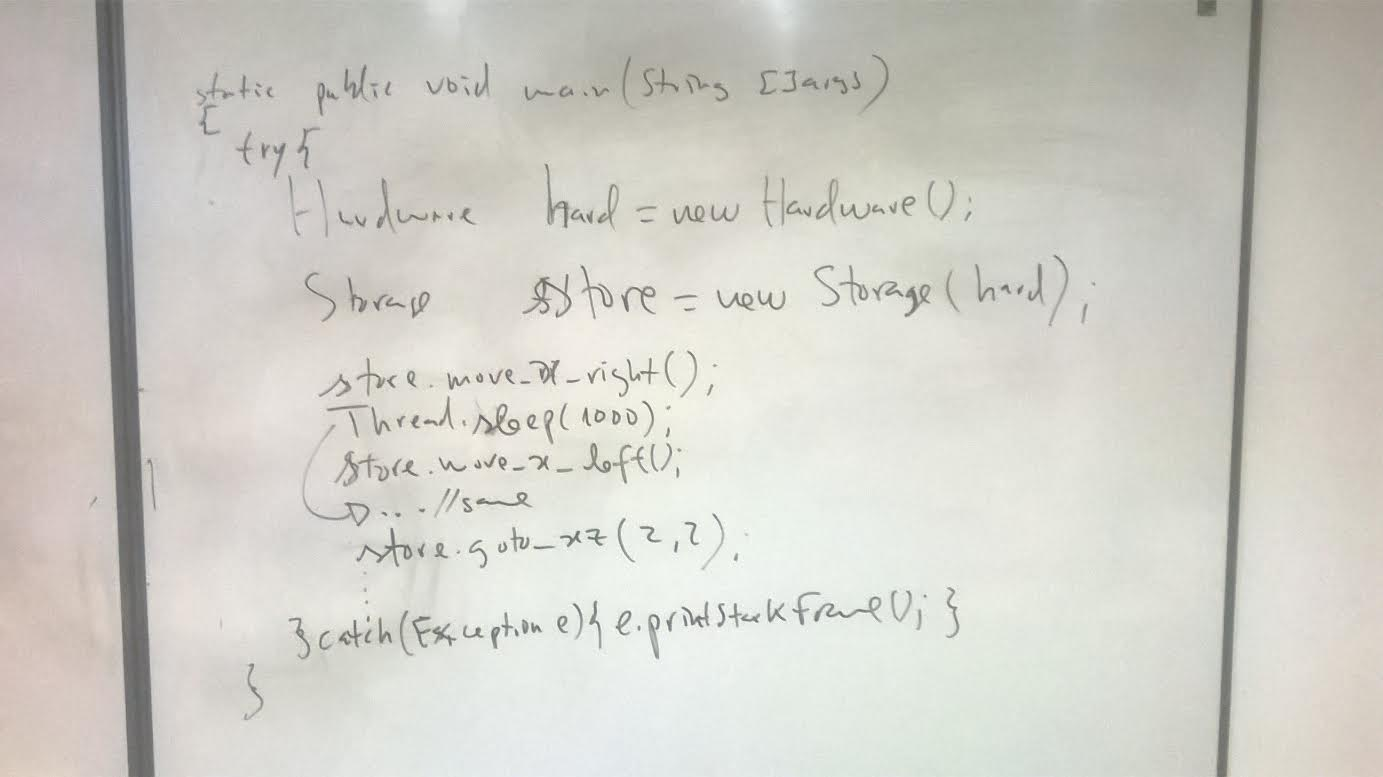 static public void main(String []args)
{
try{
Hardware hard = new Hardware();
Storage store = new Storage(hard);
store.move_x_right();
Thread.sleep(1000);
store.move_x_left();
... //same
store.goto_xz(2,2);
}catch(Exception e){ e.printStackFrame(); }
}